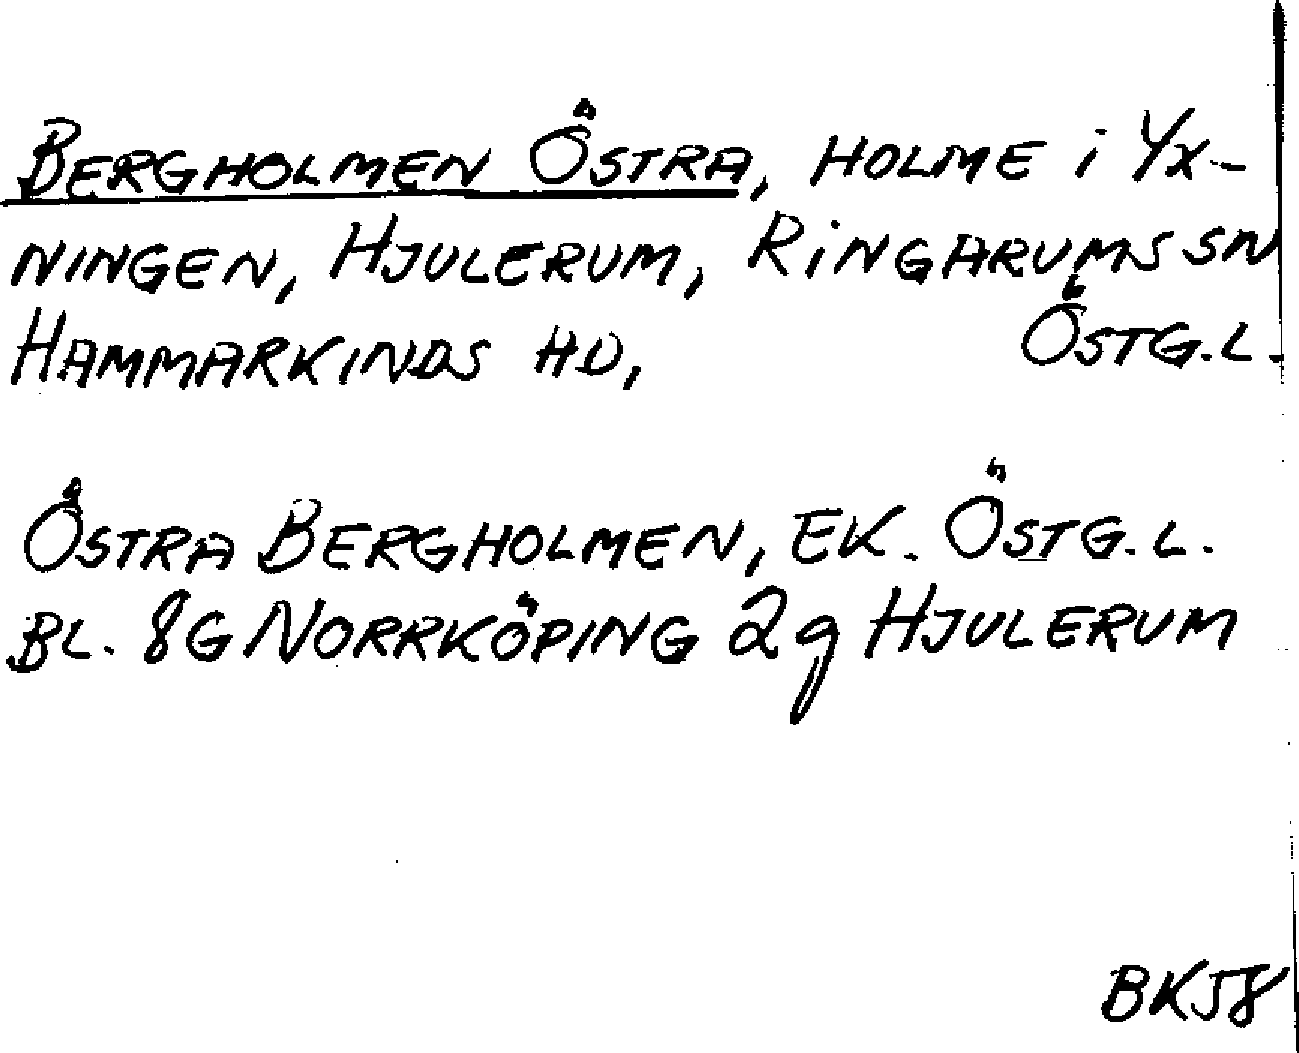 BERGHOLMEN ÖSTRA, HOLME i YX-
NINGEN, HJULERUM, RINGARUMS SN
HAMMARKINDS HD, ÖSTG.L.
ÖSTRA BERGHOLMEN, EK. ÖSTG.L.
BL. 8G NORRKÖPING 2g HJULERUM
BKJ8